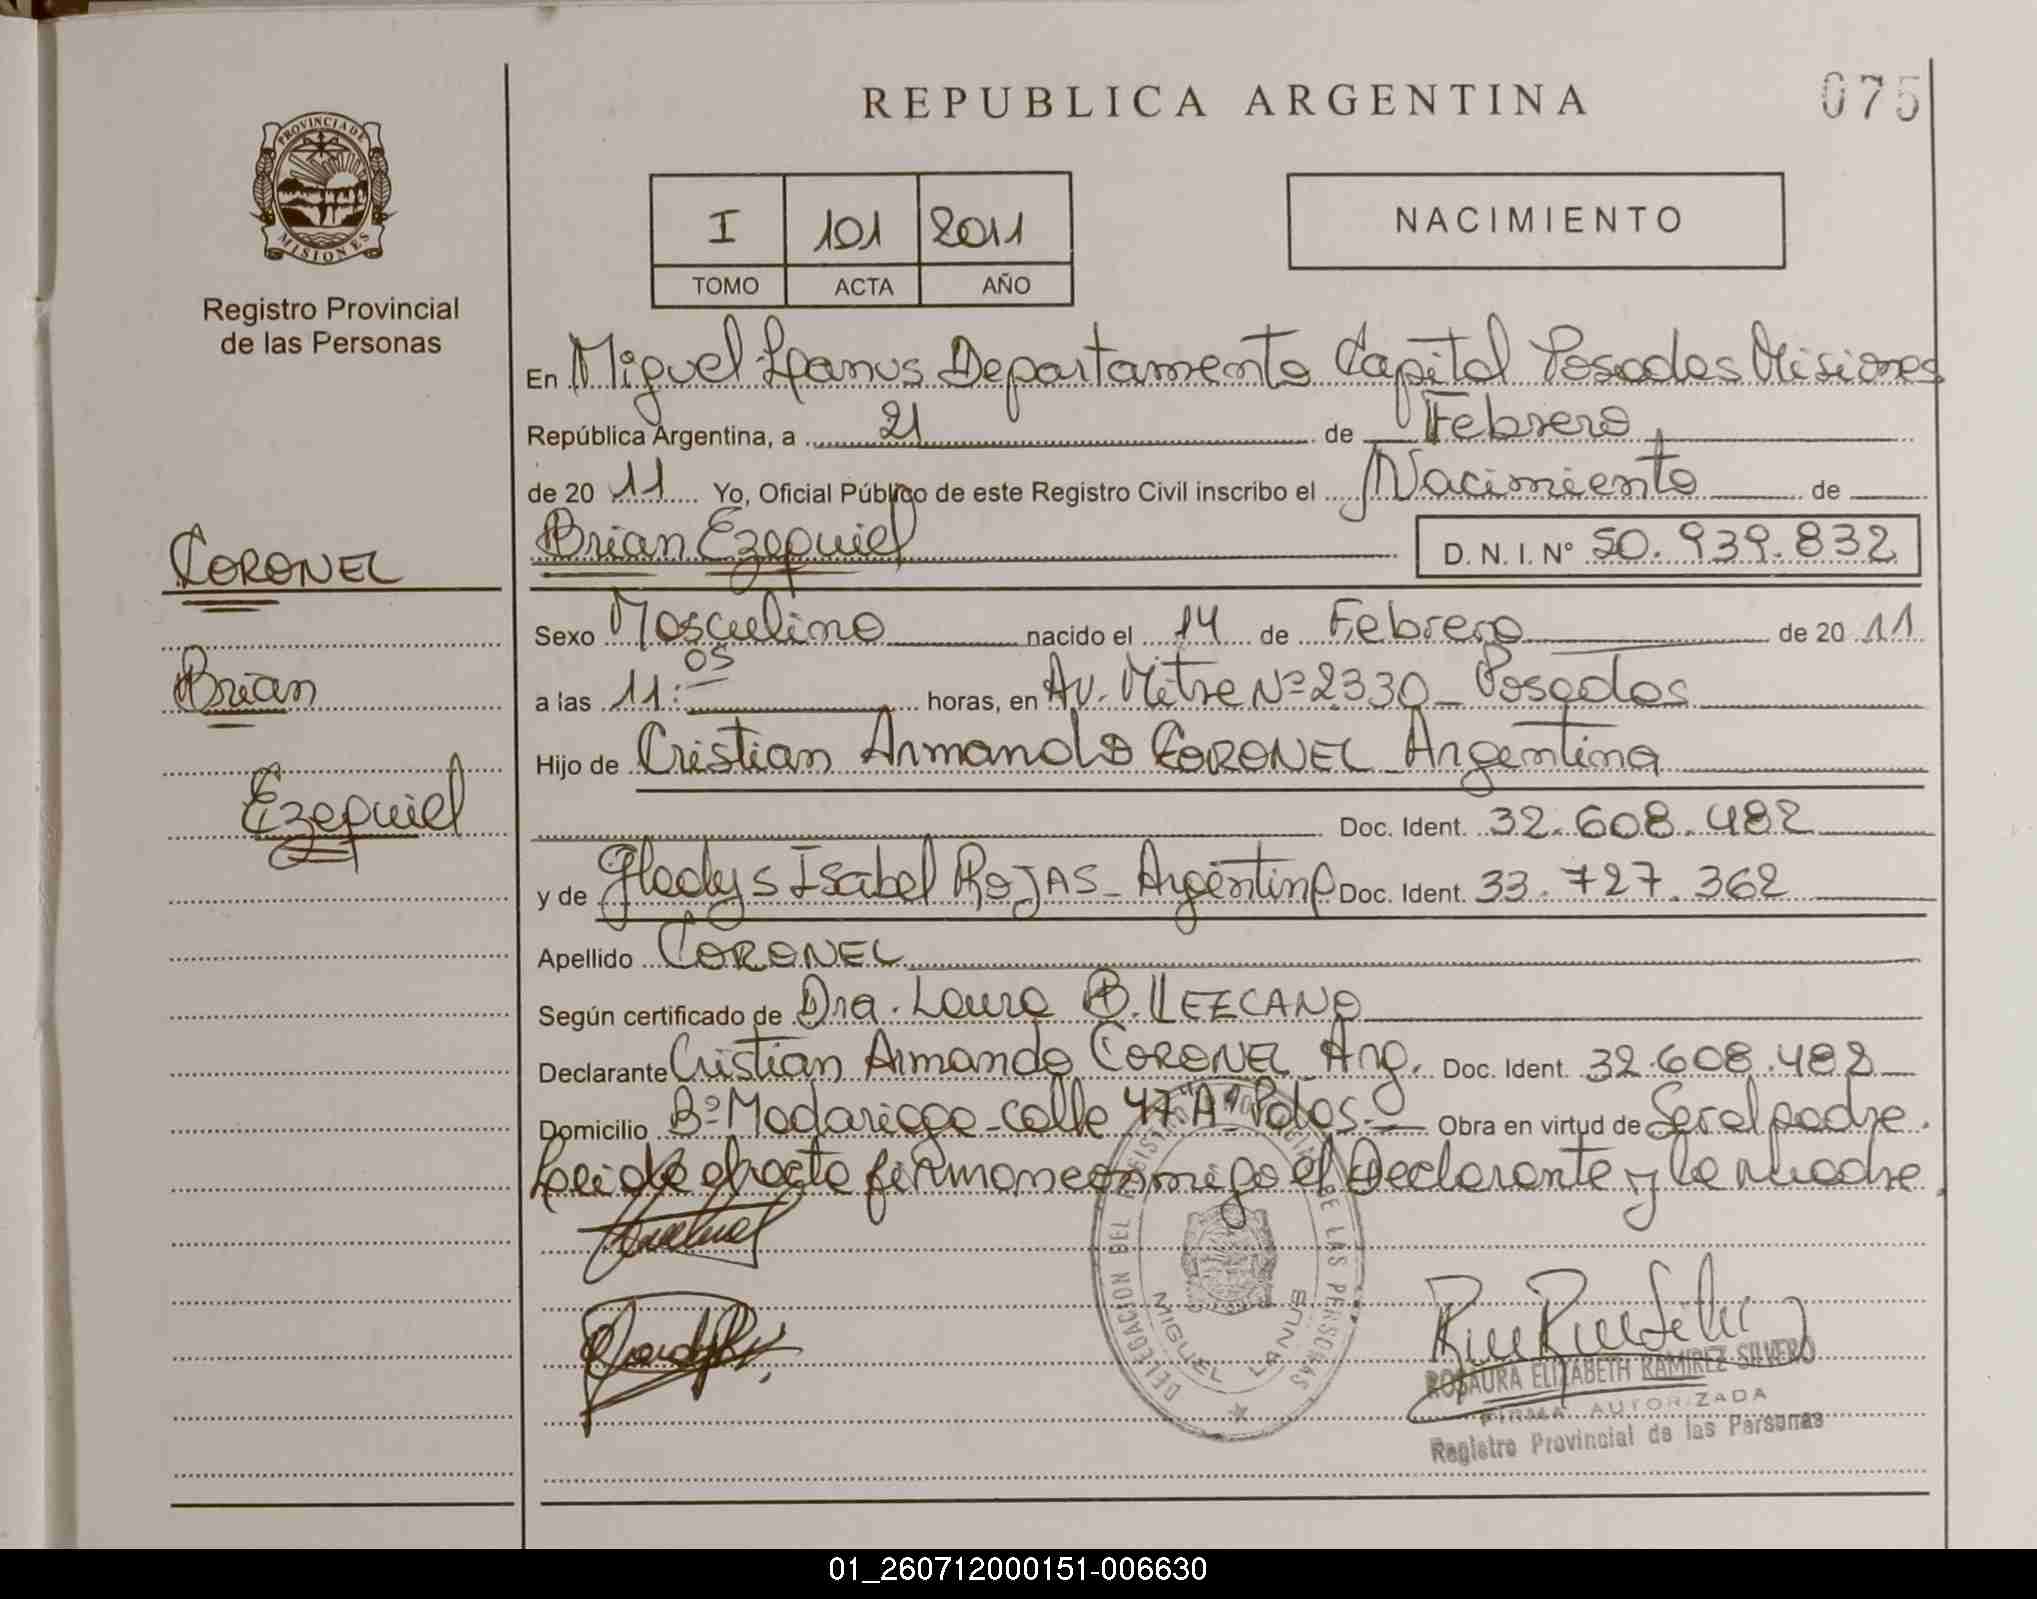 REPUBLICA ARGENTINA
075
PROVINCIA DE
MISIONES
Registro Provincial
de las Personas
I 101 2011
TOMO ACTA AÑO
NACIMIENTO
En Miguel Lanus Departamento Capital Posadas Misiones
República Argentina, a 21 de Febrero
de 20 11 Yo, Oficial Público de este Registro Civil inscribo el Nacimiento de
Brian Ezequiel D. N. I. Nº 50.939.832
CORONEL
Brian
Ezequiel
Sexo Masculino nacido el 14 de Febrero de 20 11
a las 11:05 horas, en Av. Mitre Nº 2330 - Posadas
Hijo de Cristian Armando CORONEL Argentina
Doc. Ident. 32.608.482
y de Gladys Isabel ROJAS - Argentina Doc. Ident. 33.727.362
Apellido CORONEL
Según certificado de Dra. Laura B. LEZCANO
Declarante Cristian Armando CORONEL Arg. Doc. Ident. 32.608.482
Domicilio Bº Madariaga - calle 47 "A" Pdas - Obra en virtud de Ser el padre.
Leida el acta firman conmigo el Declarante y la Madre.
DELEGACION DEL REGISTRO PROVINCIAL DE LAS PERSONAS
MIGUEL LANUS
ROSAURA ELIZABETH RAMIREZ SILVERO
FIRMA AUTORIZADA
Registro Provincial de las Personas
01_260712000151-006630